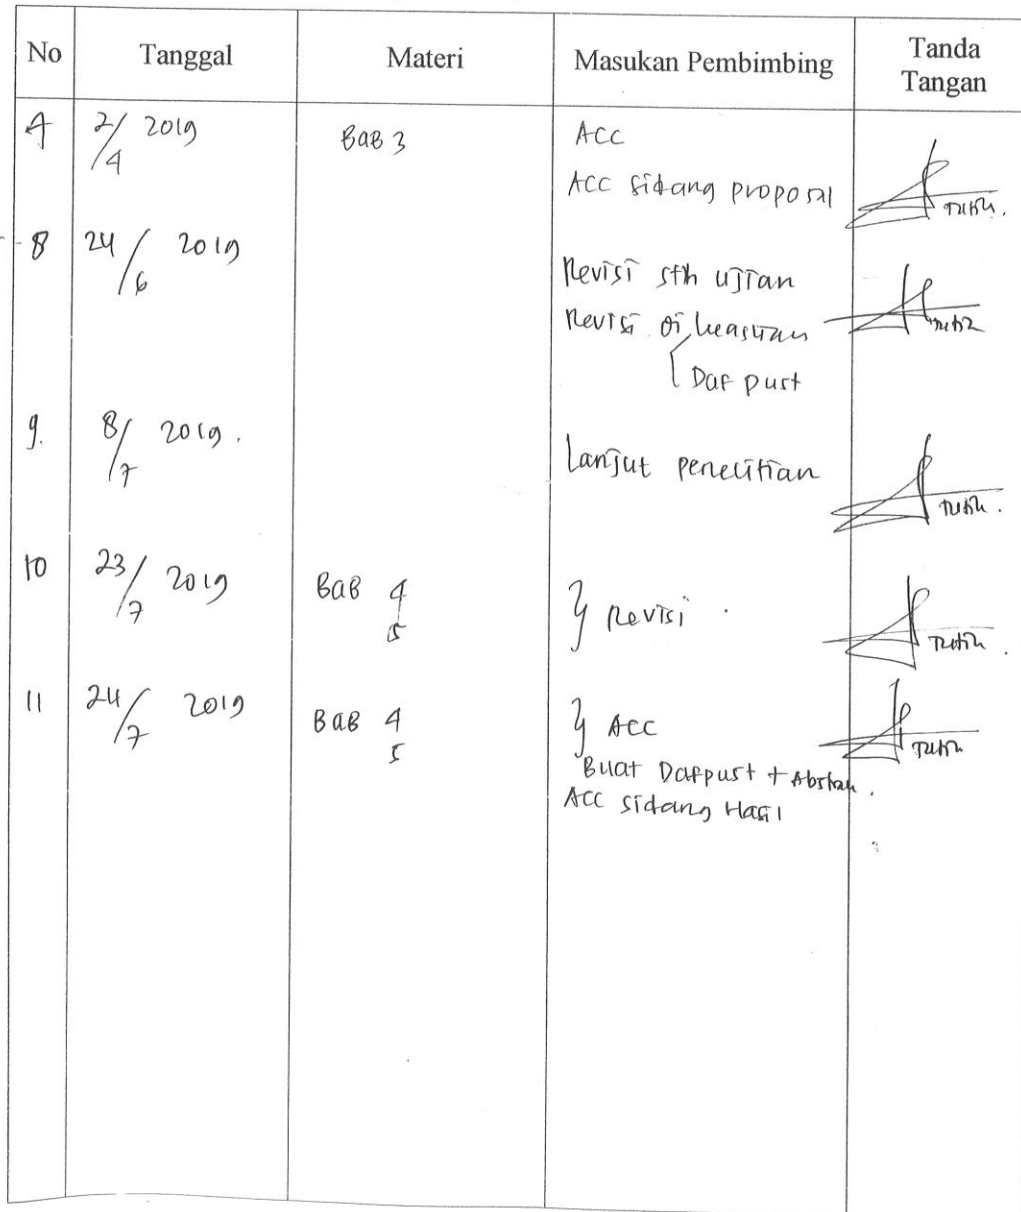 No Tanggal Materi Masukan Pembimbing Tanda Tangan
4 2/4 2019 BAB 3 ACC
ACC sidang proposal
8 24/6 2019
Revisi sth ujian
Revisi
Daf pust
9. 8/7 2019.
Lanjut penelitian
10 23/7 2019 BAB 4
5 } Revisi
11 24/7 2019 BAB 4
5 } ACC
Buat Dafpust + Abstrak.
ACC sidang Hasil